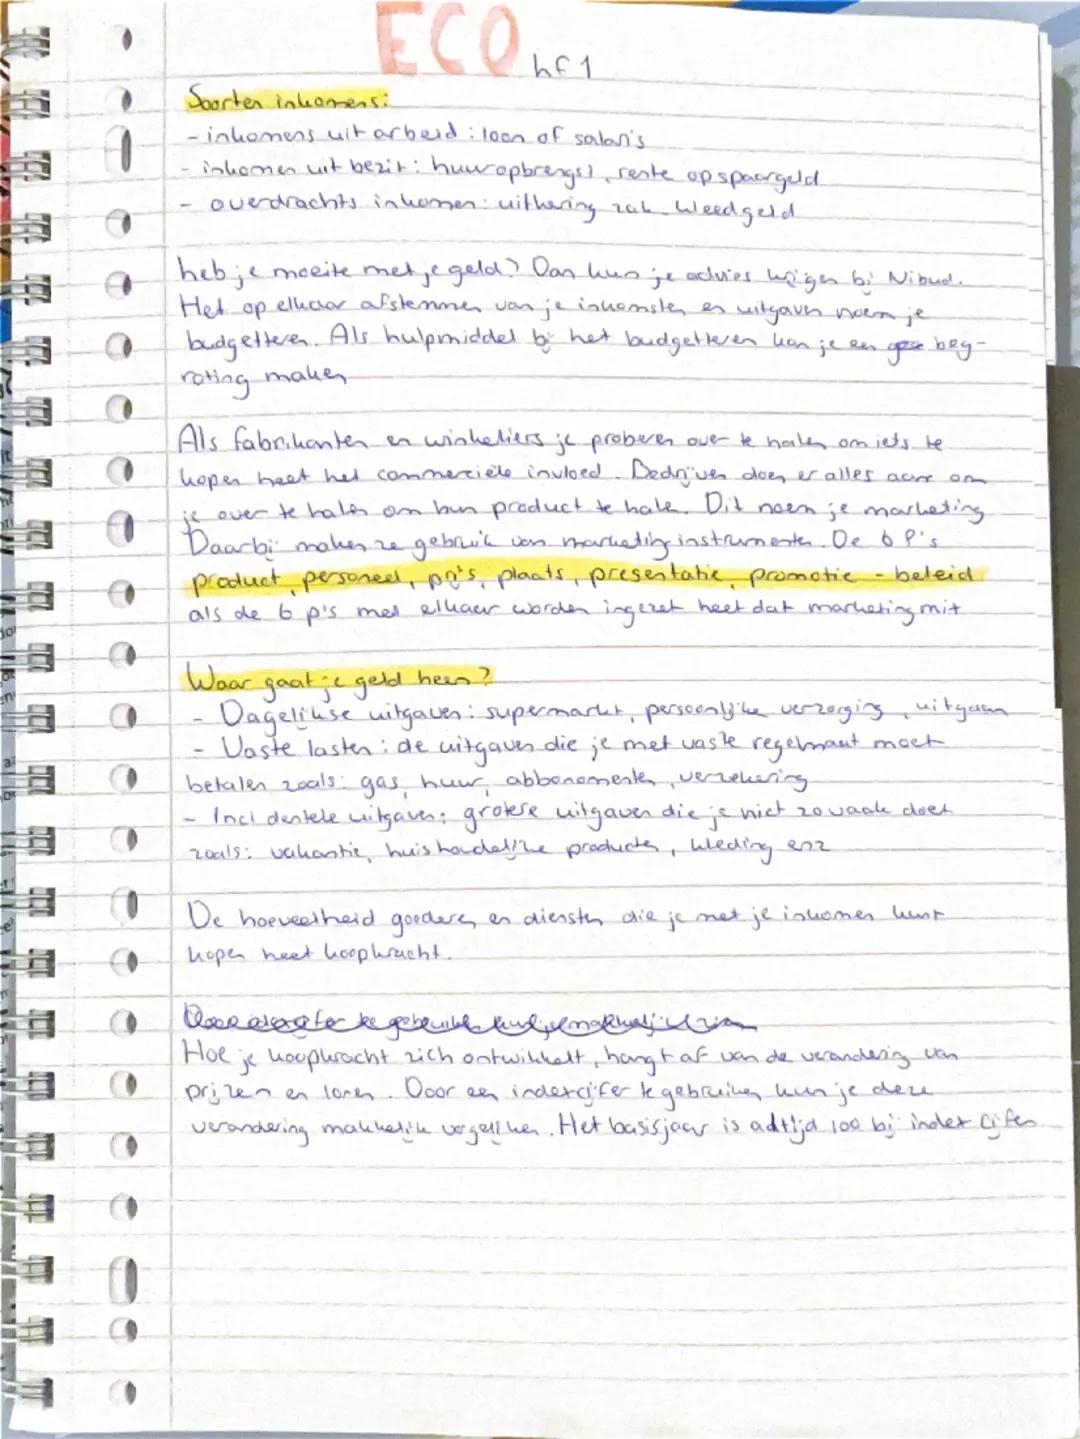 ECO hf 1
Soorten inkomens:
- inkomens uit arbeid : loon of salaris
- inkomen uit bezit : huuropbrengst, rente op spaargeld
- overdrachts inkomen : uitkering zak kleedgeld
heb je moeite met je geld? Dan kun je advies krijgen bij Nibud.
Het op elkaar afstemmen van je inkomsten en uitgaven noem je
budgetteren. Als hulpmiddel bij het budgetteren kan je een beg-
roting maken
Als fabrikanten en winkeliers je proberen over te halen om iets te
kopen heet het commerciële invloed. Bedrijven doen er alles aan om
je over te halen om hun product te hale. Dit noem je marketing
Daarbij maken ze gebruik van marketinginstrumenten. De 6 P's
product, personeel, prijs, plaats, presentatie, promotie - beleid
als de 6 p's met elkaar worden ingezet heet dat marketing mit
Waar gaat je geld heen?
- Dagelijkse uitgaven : supermarkt, persoonlijke verzorging, uitgaan
- Vaste lasten : de uitgaven die je met vaste regelmaat moet
betalen zoals: gas, huur, abbonomenten, verzekering
- Incidentele uitgaven : grotere uitgaven die je niet zo vaak doet
zoals: vakantie, huishoudelijke producten, kleding enz
De hoeveelheid goederen en diensten die je met je inkomen kunt
kopen heet koopkracht.
Hoe je koopkracht zich ontwikkelt, hangt af van de verandering van
prijzen en lonen. Door een indexcijfer te gebruiken kun je deze
verandering makkelijk vergelijken. Het basisjaar is altijd 100 bij index cijfers